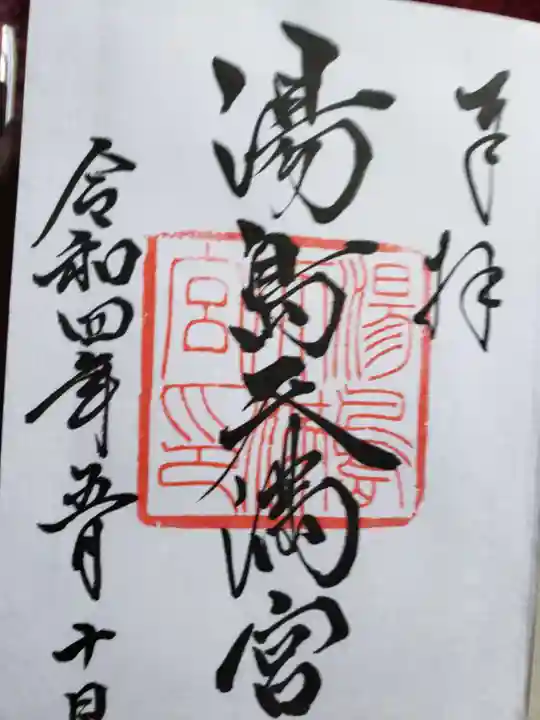 奉拝
湯島天満宮
湯島天満宮印
令和四年五月十日